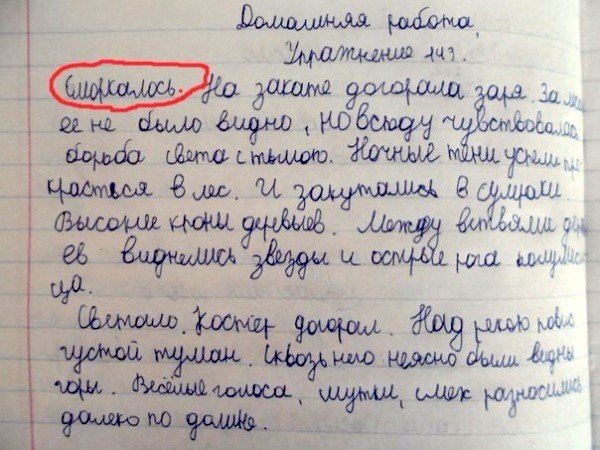 Домашняя работа,
Упражнение 143.
Сморкалось. На закате догорала заря. За
ее не было видно, но всюду чувствовалась
борьба света с тьмою. Ночные тени успели про-
красться в лес. И закутались в сумраки.
Высокие кроны деревьев. Между ветвями
ев виднелись звезды и острые рога полумеся
ца.
Светало. Костёр догорал. Над рекою повис
густой туман. Сквозь него неясно были видны
горы. Весёлые голоса, шутки, смех разносились
далеко по долине.